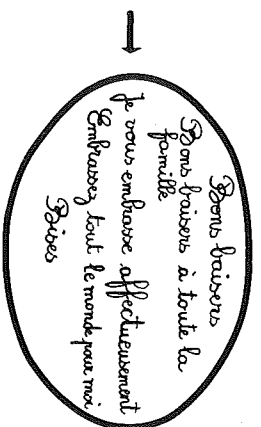 Bons baisers
Bons baisers à toute la
famille
Je vous embrasse affectueusement
Embrassez tout le monde pour moi
Bises